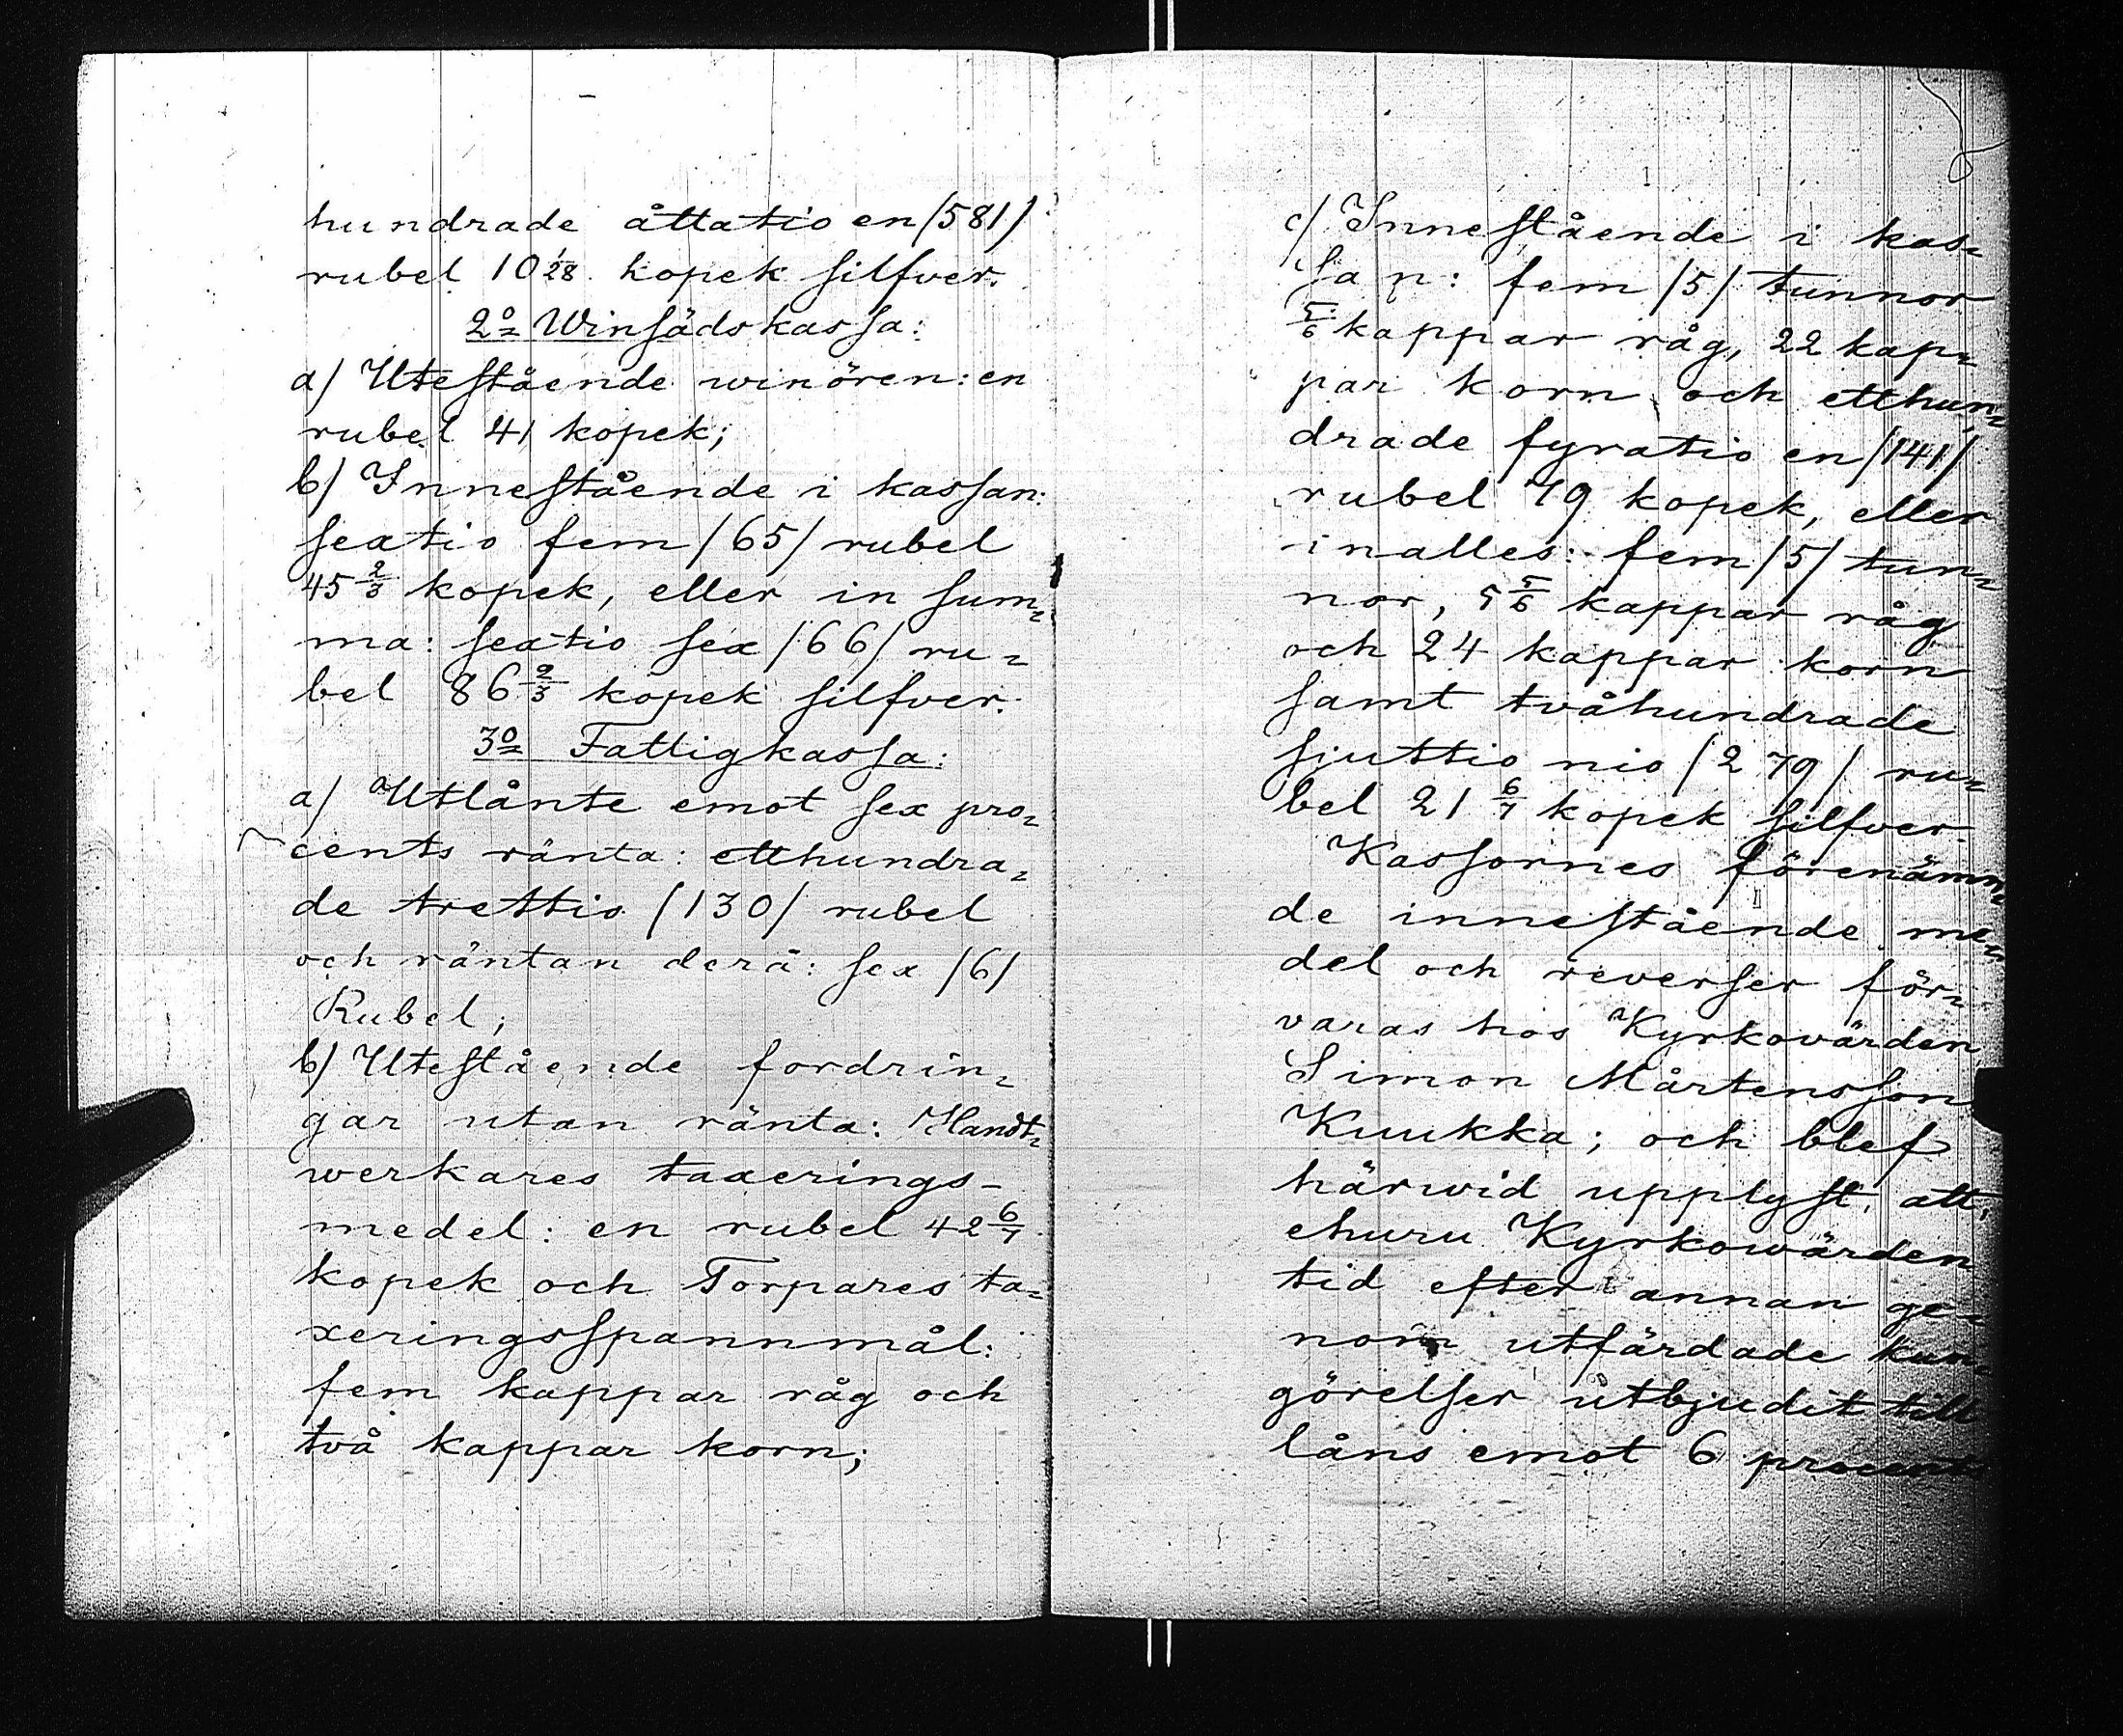 hundrade åttatio en /581/
rubel 10 1/28 kopek silfver.
2o Winsädskassa:
a/ Utestående winören: en
rubel 41 kopek;
b/ Innestående i kassan:
sextio fem /65/ rubel
45 2/3 kopek, eller in sum=
ma: sextio sex /66/ ru=
bel 86 2/3 kopek silfver.
3o Fattigkassa:
a/ Utlånte emot sex pro=
cents ränta: etthundra=
de trettio /130/ rubel
och räntan derå: sex /6/
Rubel;
b/ Utestående fordrin=
gar utan ränta: Handt=
werkares taxerings-
medel: en rubel 42 6/7
kopek och Torpares ta=
xeringsspannmål:
fem kappar råg och
två kappar korn;
8
c/ Innestående i kas=
san: fem /5/ tunnor
5/6 kappar råg, 22 kap=
par korn och etthun=
drade fyratio en /141/
rubel 79 kopek, eller
inalles: fem /5/ tun=
nor, 5 5/6 kappar råg
och 24 kappar korn
samt tvåhundrade
sjuttio nio /279/ ru=
bel 21 6/7 kopek silfver.
Kassornes förenämn=
de innestående me=
del och reverser för=
varas hos Kyrkovärden
Simon Mårtensson
Kuukka; och blef
härwid upplyst, att,
ehuru Kyrkowärden
tid efter annan ge=
nom utfärdade kun=
görelser utbjudit till
låns emot 6 procents